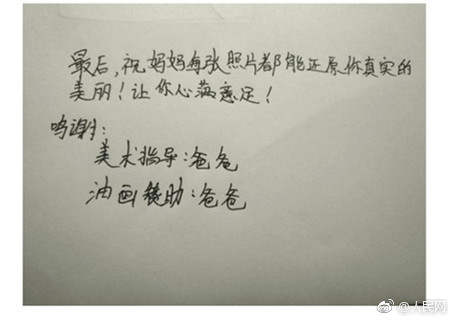 最后,祝妈妈每张照片都能还原你真实的
美丽!让你心满意足!
鸣谢:
美术指导:爸爸
油画赞助:爸爸
@人民网